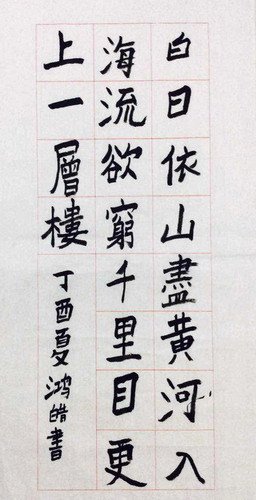 白日依山盡黃河入
海流欲窮千里目更
上一層樓
丁酉夏鴻皓書